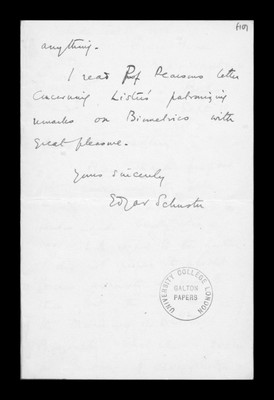 anything.
I read Prof Pearsons letter
concerning Lister's patronizing
remarks on Biometrics with
great pleasure.
Yours sincerely
Edgar Schuster
UNIVERSITY COLLEGE LONDON
GALTON
PAPERS